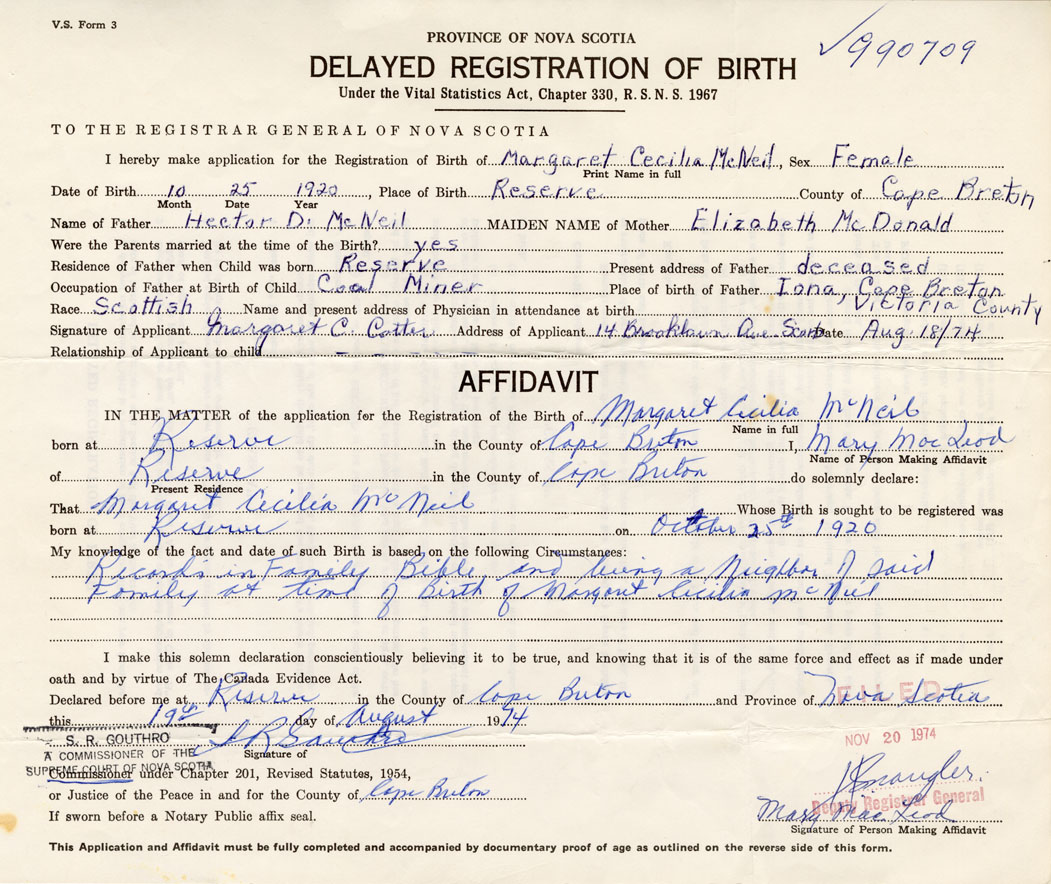 V.S. Form 3
✓990709
PROVINCE OF NOVA SCOTIA
DELAYED REGISTRATION OF BIRTH
Under the Vital Statistics Act, Chapter 330, R.S.N.S. 1967
TO THE REGISTRAR GENERAL OF NOVA SCOTIA
I hereby make application for the Registration of Birth of Margaret Cecilia McNeil, Sex Female
Print Name in full
Date of Birth 10 25 1920, Place of Birth Reserve County of Cape Breton
Month Date Year
Name of Father Hector D. McNeil MAIDEN NAME of Mother Elizabeth McDonald
Were the Parents married at the time of the Birth? yes
Residence of Father when Child was born Reserve Present address of Father deceased
Occupation of Father at Birth of Child Coal Miner Place of birth of Father Iona, Cape Breton
Race Scottish Name and present address of Physician in attendance at birth Victoria County
Signature of Applicant Margaret C. Address of Applicant 14 Brooklawn Ave Date Aug 18/74
Relationship of Applicant to child - - - - -
AFFIDAVIT
IN THE MATTER of the application for the Registration of the Birth of Margaret Cecilia McNeil
Name in full
born at Reserve in the County of Cape Breton I, Mary MacLeod
Name of Person Making Affidavit
of Reserve in the County of Cape Breton do solemnly declare:
Present Residence
That Margaret Cecilia McNeil Whose Birth is sought to be registered was
born at Reserve on October 25th 1920
My knowledge of the fact and date of such Birth is based on the following Circumstances:
Records in Family Bible and being a Neighbor of said
Family at time of Birth of Margaret Cecilia McNeil
I make this solemn declaration conscientiously believing it to be true, and knowing that it is of the same force and effect as if made under
oath and by virtue of The Canada Evidence Act.
Declared before me at Reserve in the County of Cape Breton and Province of Nova Scotia
FILED
this 19th day of August 1974
S. R. GOUTHRO
A COMMISSIONER OF THE
SUPREME COURT OF NOVA SCOTIA
S R Gouthro
Signature of
NOV 20 1974
Commissioner under Chapter 201, Revised Statutes, 1954,
or Justice of the Peace in and for the County of Cape Breton
Deputy Registrar General
Mary MacLeod
If sworn before a Notary Public affix seal.
Signature of Person Making Affidavit
This Application and Affidavit must be fully completed and accompanied by documentary proof of age as outlined on the reverse side of this form.